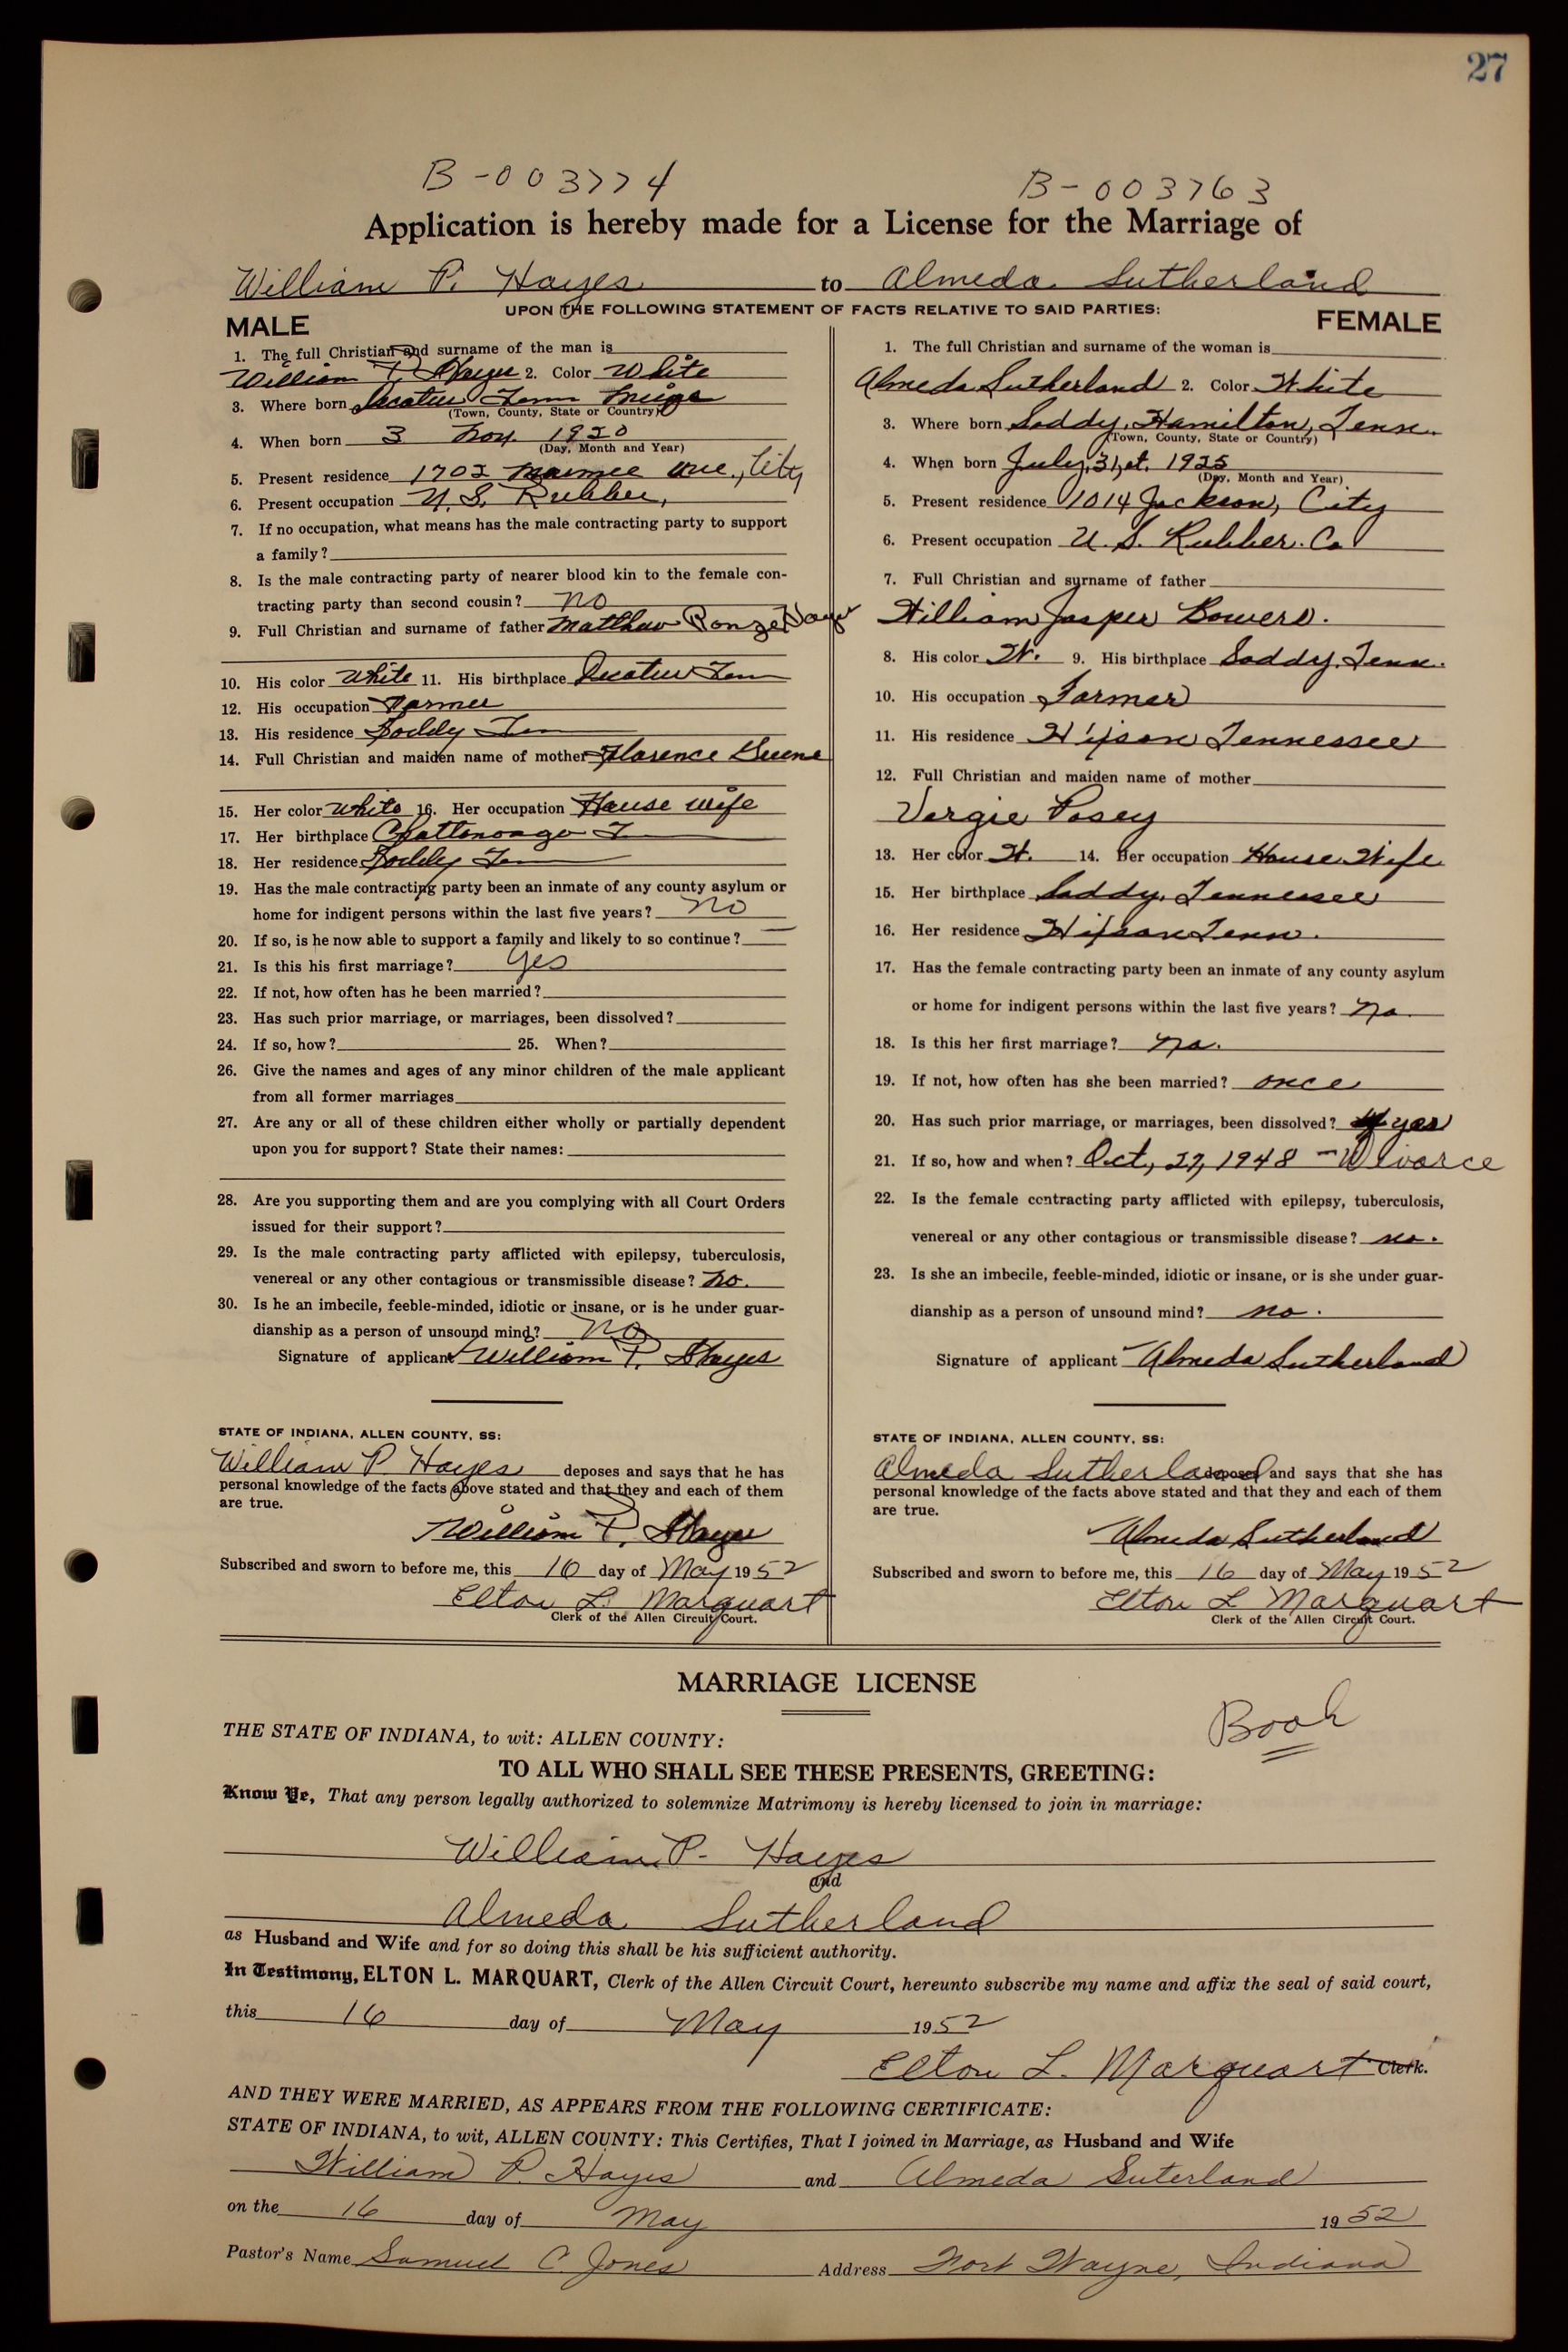 27
B-003774
B-003763
Application is hereby made for a License for the Marriage of
William P. Hayes to Almeda Sutherland
UPON THE FOLLOWING STATEMENT OF FACTS RELATIVE TO SAID PARTIES:
MALE
1. The full Christian and surname of the man is
William P. Hayes 2. Color White
3. Where born Decatur Tenn Meigs
(Town, County, State or Country)
4. When born 3 Nov. 1920
(Day, Month and Year)
5. Present residence 1702 Maumee Ave., City
6. Present occupation U.S. Rubber,
7. If no occupation, what means has the male contracting party to support
a family?
8. Is the male contracting party of nearer blood kin to the female con-
tracting party than second cousin? no
9. Full Christian and surname of father Matthew Hayes
10. His color White 11. His birthplace Decatur Tenn
12. His occupation Farmer
13. His residence Soddy Tenn
14. Full Christian and maiden name of mother Florence
15. Her color White 16. Her occupation House wife
17. Her birthplace Chattanooga T
18. Her residence Soddy Tenn
19. Has the male contracting party been an inmate of any county asylum or
home for indigent persons within the last five years? no
20. If so, is he now able to support a family and likely to so continue?
21. Is this his first marriage? yes
22. If not, how often has he been married?
23. Has such prior marriage, or marriages, been dissolved?
24. If so, how? 25. When?
26. Give the names and ages of any minor children of the male applicant
from all former marriages
27. Are any or all of these children either wholly or partially dependent
upon you for support? State their names:
28. Are you supporting them and are you complying with all Court Orders
issued for their support?
29. Is the male contracting party afflicted with epilepsy, tuberculosis,
venereal or any other contagious or transmissible disease? no.
30. Is he an imbecile, feeble-minded, idiotic or insane, or is he under guar-
dianship as a person of unsound mind? no
Signature of applicant William P. Hayes
STATE OF INDIANA, ALLEN COUNTY, SS:
William P Hayes deposes and says that he has
personal knowledge of the facts above stated and that they and each of them
are true.
William P. Hayes
Subscribed and sworn to before me, this 16 day of May 1952
Elton L. Marquart
Clerk of the Allen Circuit Court.
FEMALE
1. The full Christian and surname of the woman is
Almeda Sutherland 2. Color White
3. Where born Soddy, Hamilton, Tenn.
(Town, County, State or Country)
4. When born July, 31, st. 1925
(Day, Month and Year)
5. Present residence 1014 Jackson, City
6. Present occupation U. S. Rubber. Co
7. Full Christian and surname of father
William Jasper Bowers.
8. His color W. 9. His birthplace Soddy, Tenn.
10. His occupation Farmer
11. His residence Hixson Tennessee
12. Full Christian and maiden name of mother
Vergie Posey
13. Her color W. 14. Her occupation House Wife
15. Her birthplace Soddy, Tennessee
16. Her residence Hixson Tenn.
17. Has the female contracting party been an inmate of any county asylum
or home for indigent persons within the last five years? no
18. Is this her first marriage? no.
19. If not, how often has she been married? once
20. Has such prior marriage, or marriages, been dissolved? yes
21. If so, how and when? Oct, 27, 1948 - Divorce
22. Is the female contracting party afflicted with epilepsy, tuberculosis,
venereal or any other contagious or transmissible disease? no.
23. Is she an imbecile, feeble-minded, idiotic or insane, or is she under guar-
dianship as a person of unsound mind? no.
Signature of applicant Almeda Sutherland
STATE OF INDIANA, ALLEN COUNTY, SS:
Almeda Sutherland deposes and says that she has
personal knowledge of the facts above stated and that they and each of them
are true.
Almeda Sutherland
Subscribed and sworn to before me, this 16 day of May 1952
Elton L Marquart
Clerk of the Allen Circuit Court.
MARRIAGE LICENSE
Book
THE STATE OF INDIANA, to wit: ALLEN COUNTY:
TO ALL WHO SHALL SEE THESE PRESENTS, GREETING:
Know Ye, That any person legally authorized to solemnize Matrimony is hereby licensed to join in marriage:
William P. Hayes
and
Almeda Sutherland
as Husband and Wife and for so doing this shall be his sufficient authority.
In Testimony, ELTON L. MARQUART, Clerk of the Allen Circuit Court, hereunto subscribe my name and affix the seal of said court,
this 16 day of May 1952
Elton L. Marquart Clerk.
AND THEY WERE MARRIED, AS APPEARS FROM THE FOLLOWING CERTIFICATE:
STATE OF INDIANA, to wit, ALLEN COUNTY: This Certifies, That I joined in Marriage, as Husband and Wife
William P. Hayes and Almeda Suterland
on the 16 day of May 1952
Pastor's Name Samuel C. Jones Address Fort Wayne, Indiana